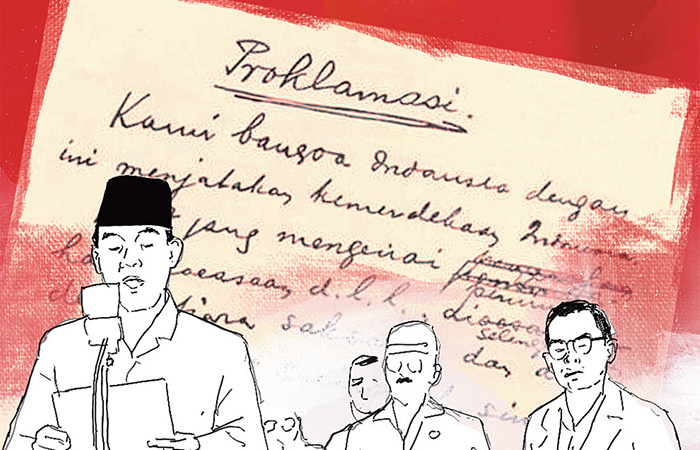 Proklamasi.
Kami bangsa Indonesia dengan
ini menjatakan kemerdekaan Indonesia.
jang mengenai
oeasaan d.l.l., dioesa
selen
d tjara saks dan d
sin